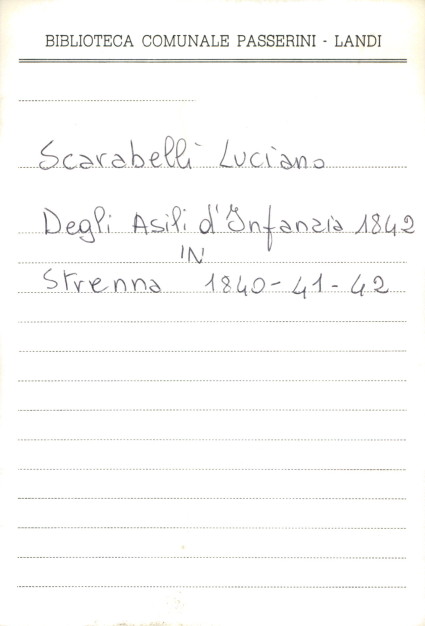 BIBLIOTECA COMUNALE PASSERINI - LANDI
Scarabelli Luciano
Degli Asili d'Infanzia 1842
IN
Strenna 1840-41-42